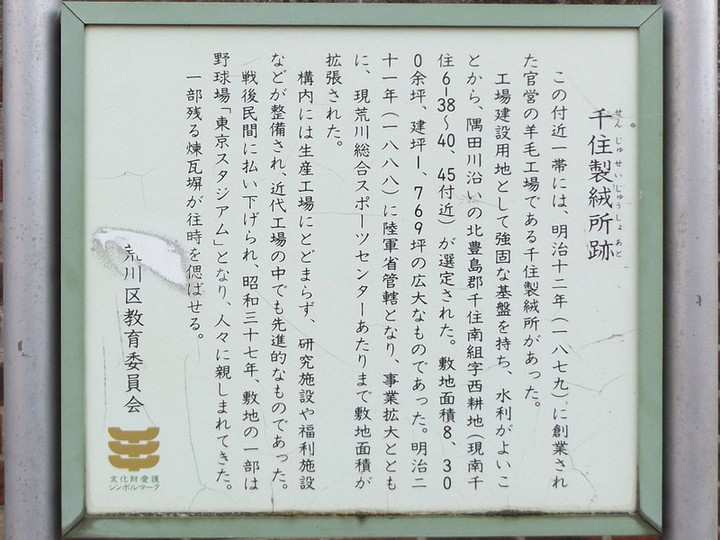 千住製絨所跡
せんじゅせいじゅうしょあと
この付近一帯には、明治十二年（一八七九）に創業され
た官営の羊毛工場である千住製絨所があった。
工場建設用地として強固な基盤を持ち、水利がよいこ
とから、隅田川沿いの北豊島郡千住南組字西耕地（現南千
住6－38～40、45付近）が選定された。敷地面積8、30
0余坪、建坪1、769坪の広大なものであった。明治二
十一年（一八八八）に陸軍省管轄となり、事業拡大ととも
に、現荒川総合スポーツセンターあたりまで敷地面積が
拡張された。
構内には生産工場にとどまらず、研究施設や福利施設
などが整備され、近代工場の中でも先進的なものであった。
戦後民間に払い下げられ、昭和三十七年、敷地の一部は
野球場「東京スタジアム」となり、人々に親しまれてきた。
一部残る煉瓦塀が往時を偲ばせる。
荒川区教育委員会
文化財愛護
シンボルマーク